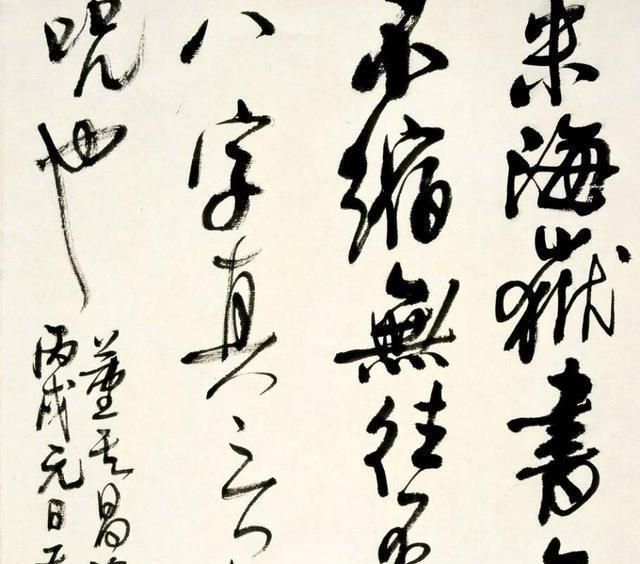 米海嶽書
不縮無往不
八字真言
呪也
董其昌
丙戌元日